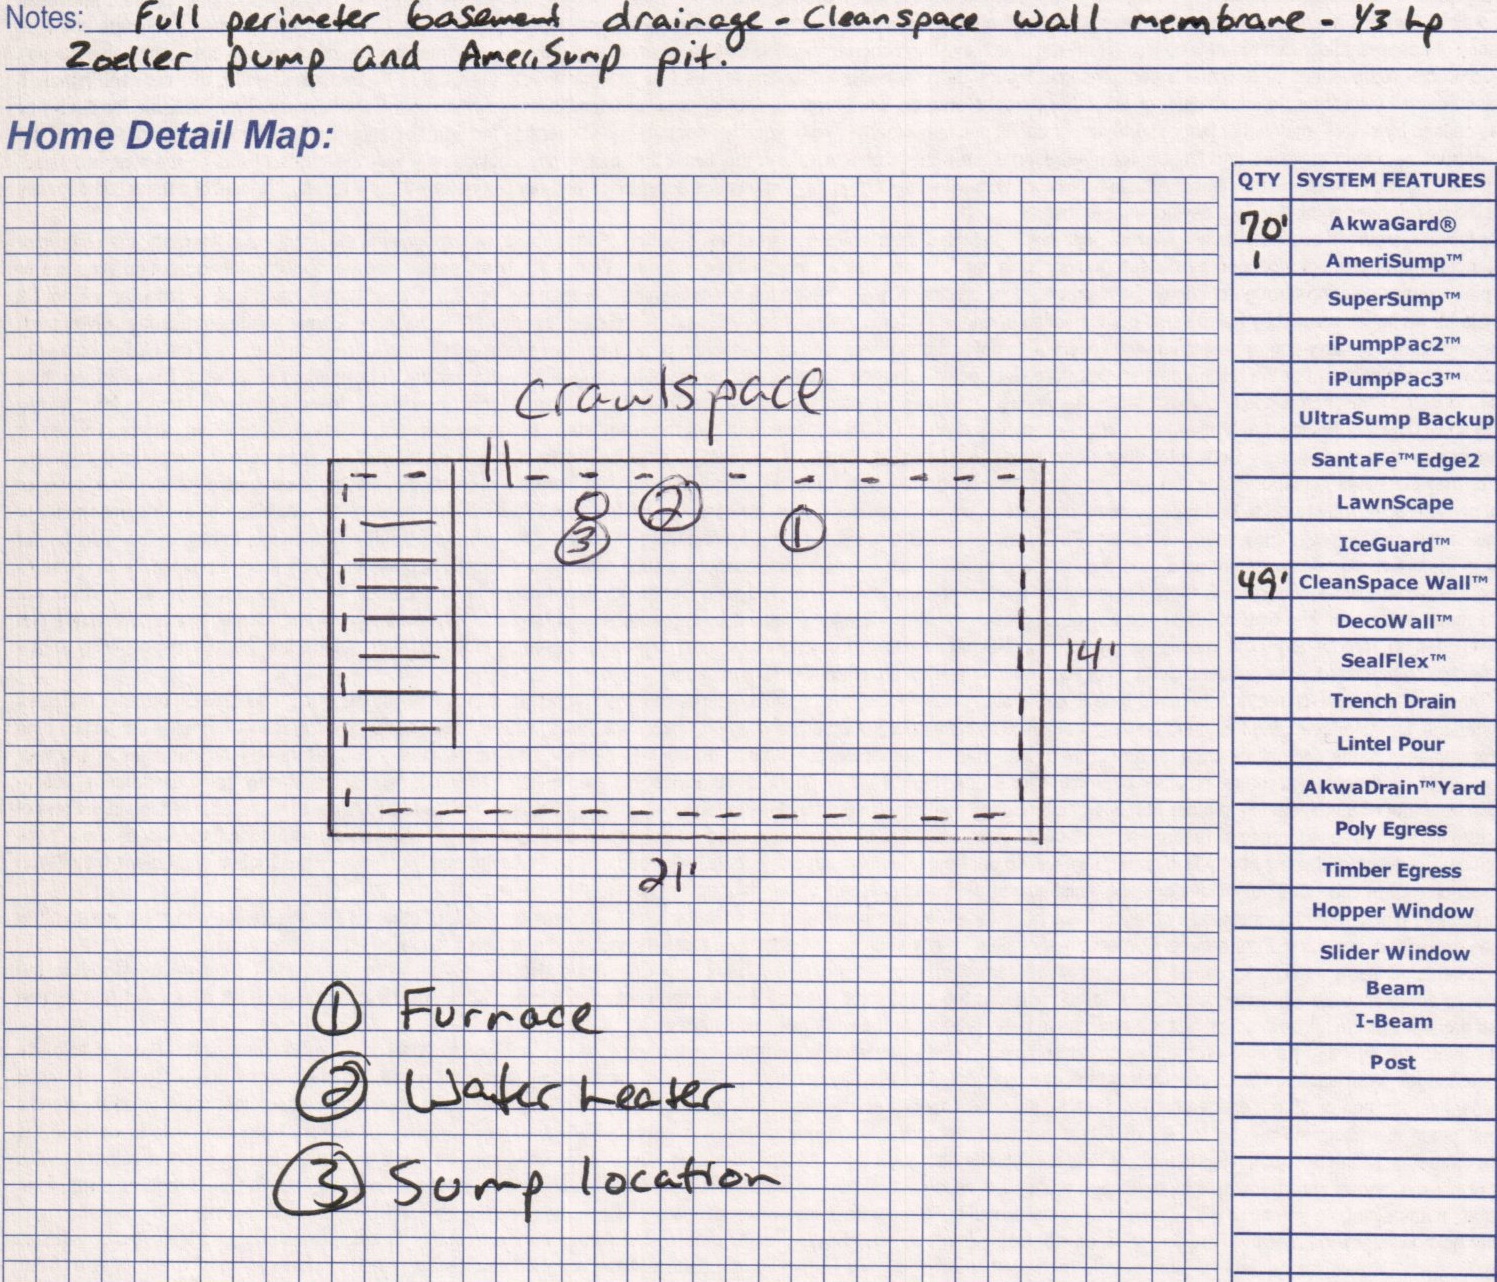 Notes: Full perimeter basement drainage - Cleanspace wall membrane - 1/3 hp
Zoeller pump and AmeriSump pit.
Home Detail Map:
QTY SYSTEM FEATURES
70' AkwaGard®
1 AmeriSump™
SuperSump™
iPumpPac2™
iPumpPac3™
UltraSump Backup
SantaFe™Edge2
LawnScape
IceGuard™
49' CleanSpace Wall™
DecoWall™
SealFlex™
Trench Drain
Lintel Pour
AkwaDrain™Yard
Poly Egress
Timber Egress
Hopper Window
Slider Window
Beam
I-Beam
Post
crawlspace
2
1
3
14'
21'
1 Furnace
2 Water heater
3 Sump location